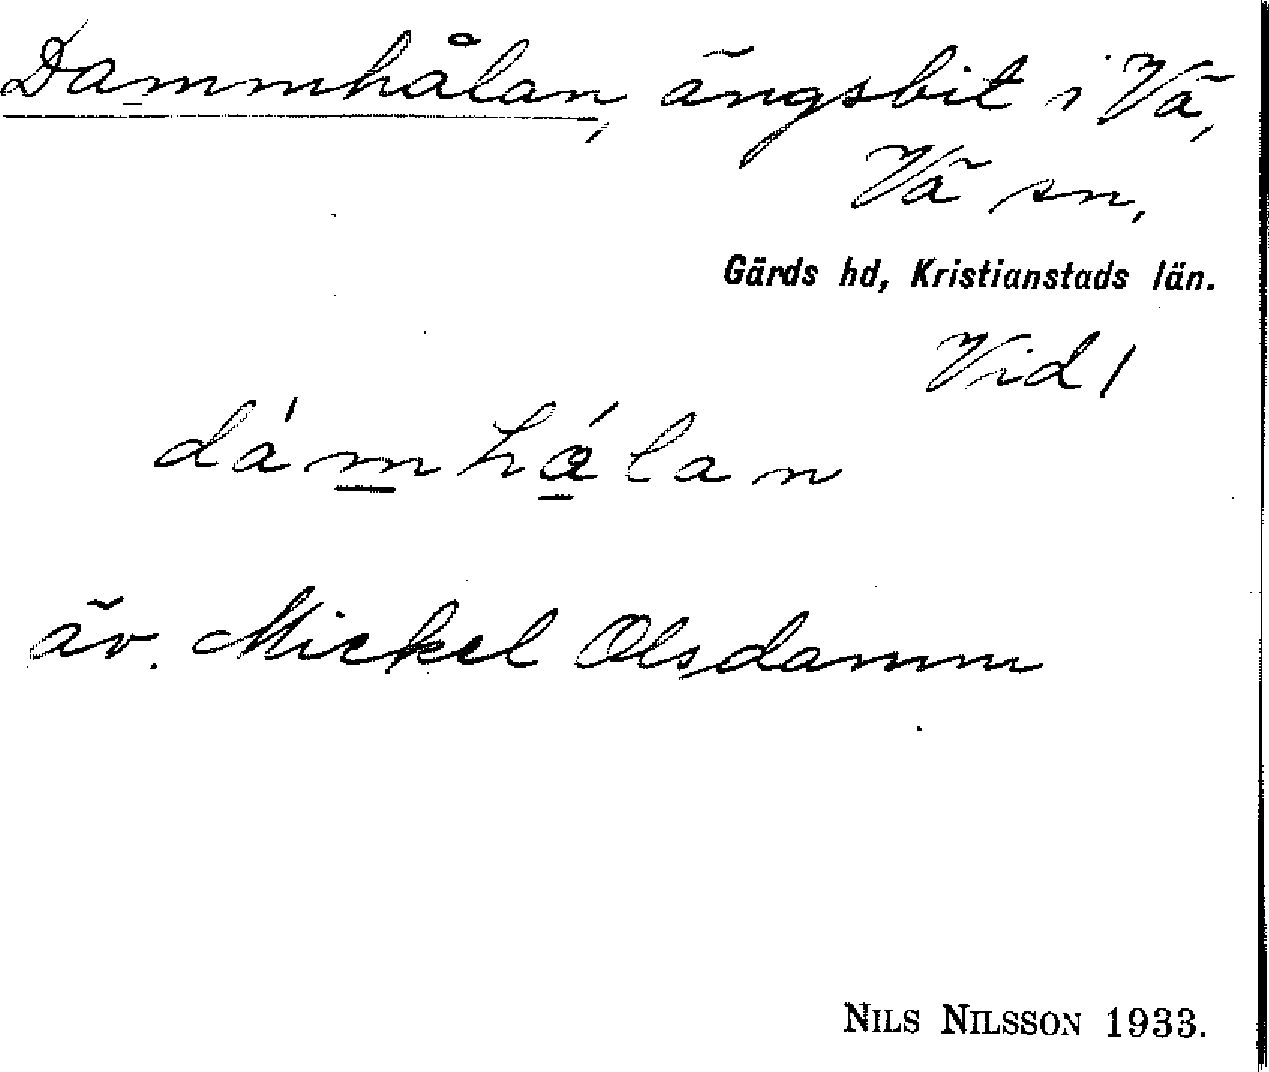 Dammhålan, ängsbit i Vä,
Vä sn,
Gärds hd, Kristianstads län.
Vid 1
dámhálan
äv. Mickel Olsdamm
NILS NILSSON 1933.